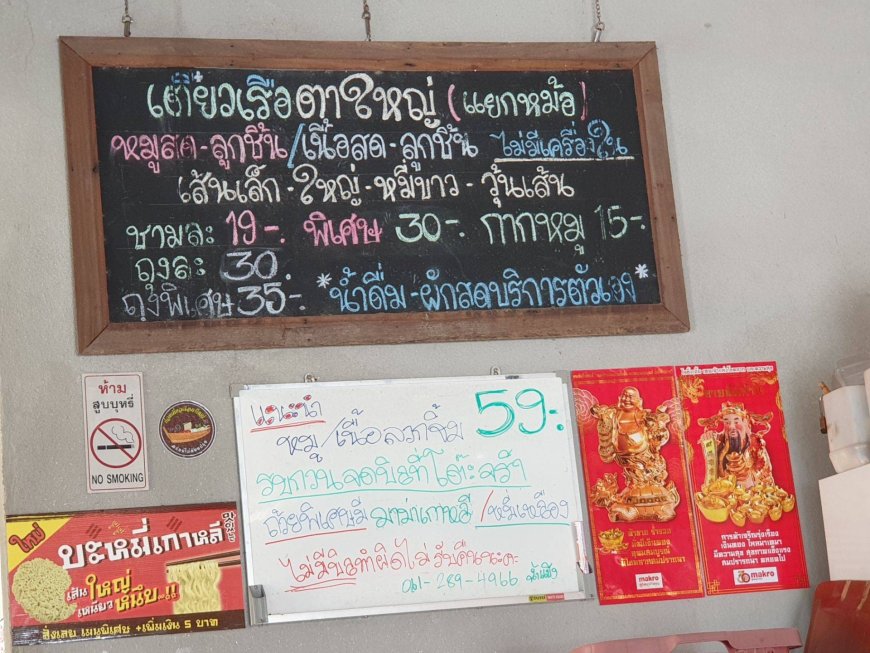 เตี๋ยวเรือตาใหญ่ (แยกหม้อ)
หมูสด-ลูกชิ้น/เนื้อสด-ลูกชิ้น ไม่มีเครื่องใน
เส้นเล็ก-ใหญ่-หมี่ขาว-วุ้นเส้น
ชามละ 19-. พิเศษ 30-. กากหมู 15-.
ถุงละ 30.
ถุงพิเศษ 35-. *น้ำดื่ม-ผักสดบริการตัวเอง*
ห้าม
สูบบุหรี่
NO SMOKING
แนะนำ
หมู/เนื้อลวกจิ้ม 59-.
รบกวนจดบิลที่โต๊ะจร้า
ถ้วยพิเศษมี มาม่าเกาหลี/หมี่เหลือง
ไม่มีบิลทำผิดไม่รับคืนนะคะ
061-289-4966
ใหม่
บะหมี่เกาหลี
เส้นใหญ่
เหนียวหนึบ...!!
สั่งเลย เมนูพิเศษ +เพิ่มเงิน 5 บาท
makro
การค้าเจริญรุ่งเรือง
เงินทอง ไหลมาเทมา
มีความสุข สุขภาพแข็งแรง
สมปรารถนา ตลอดไป
makro